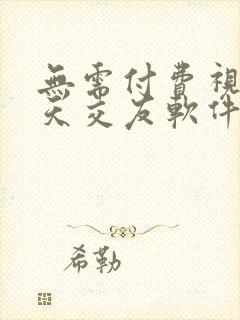 無需付費視
天交友軟件
希勒